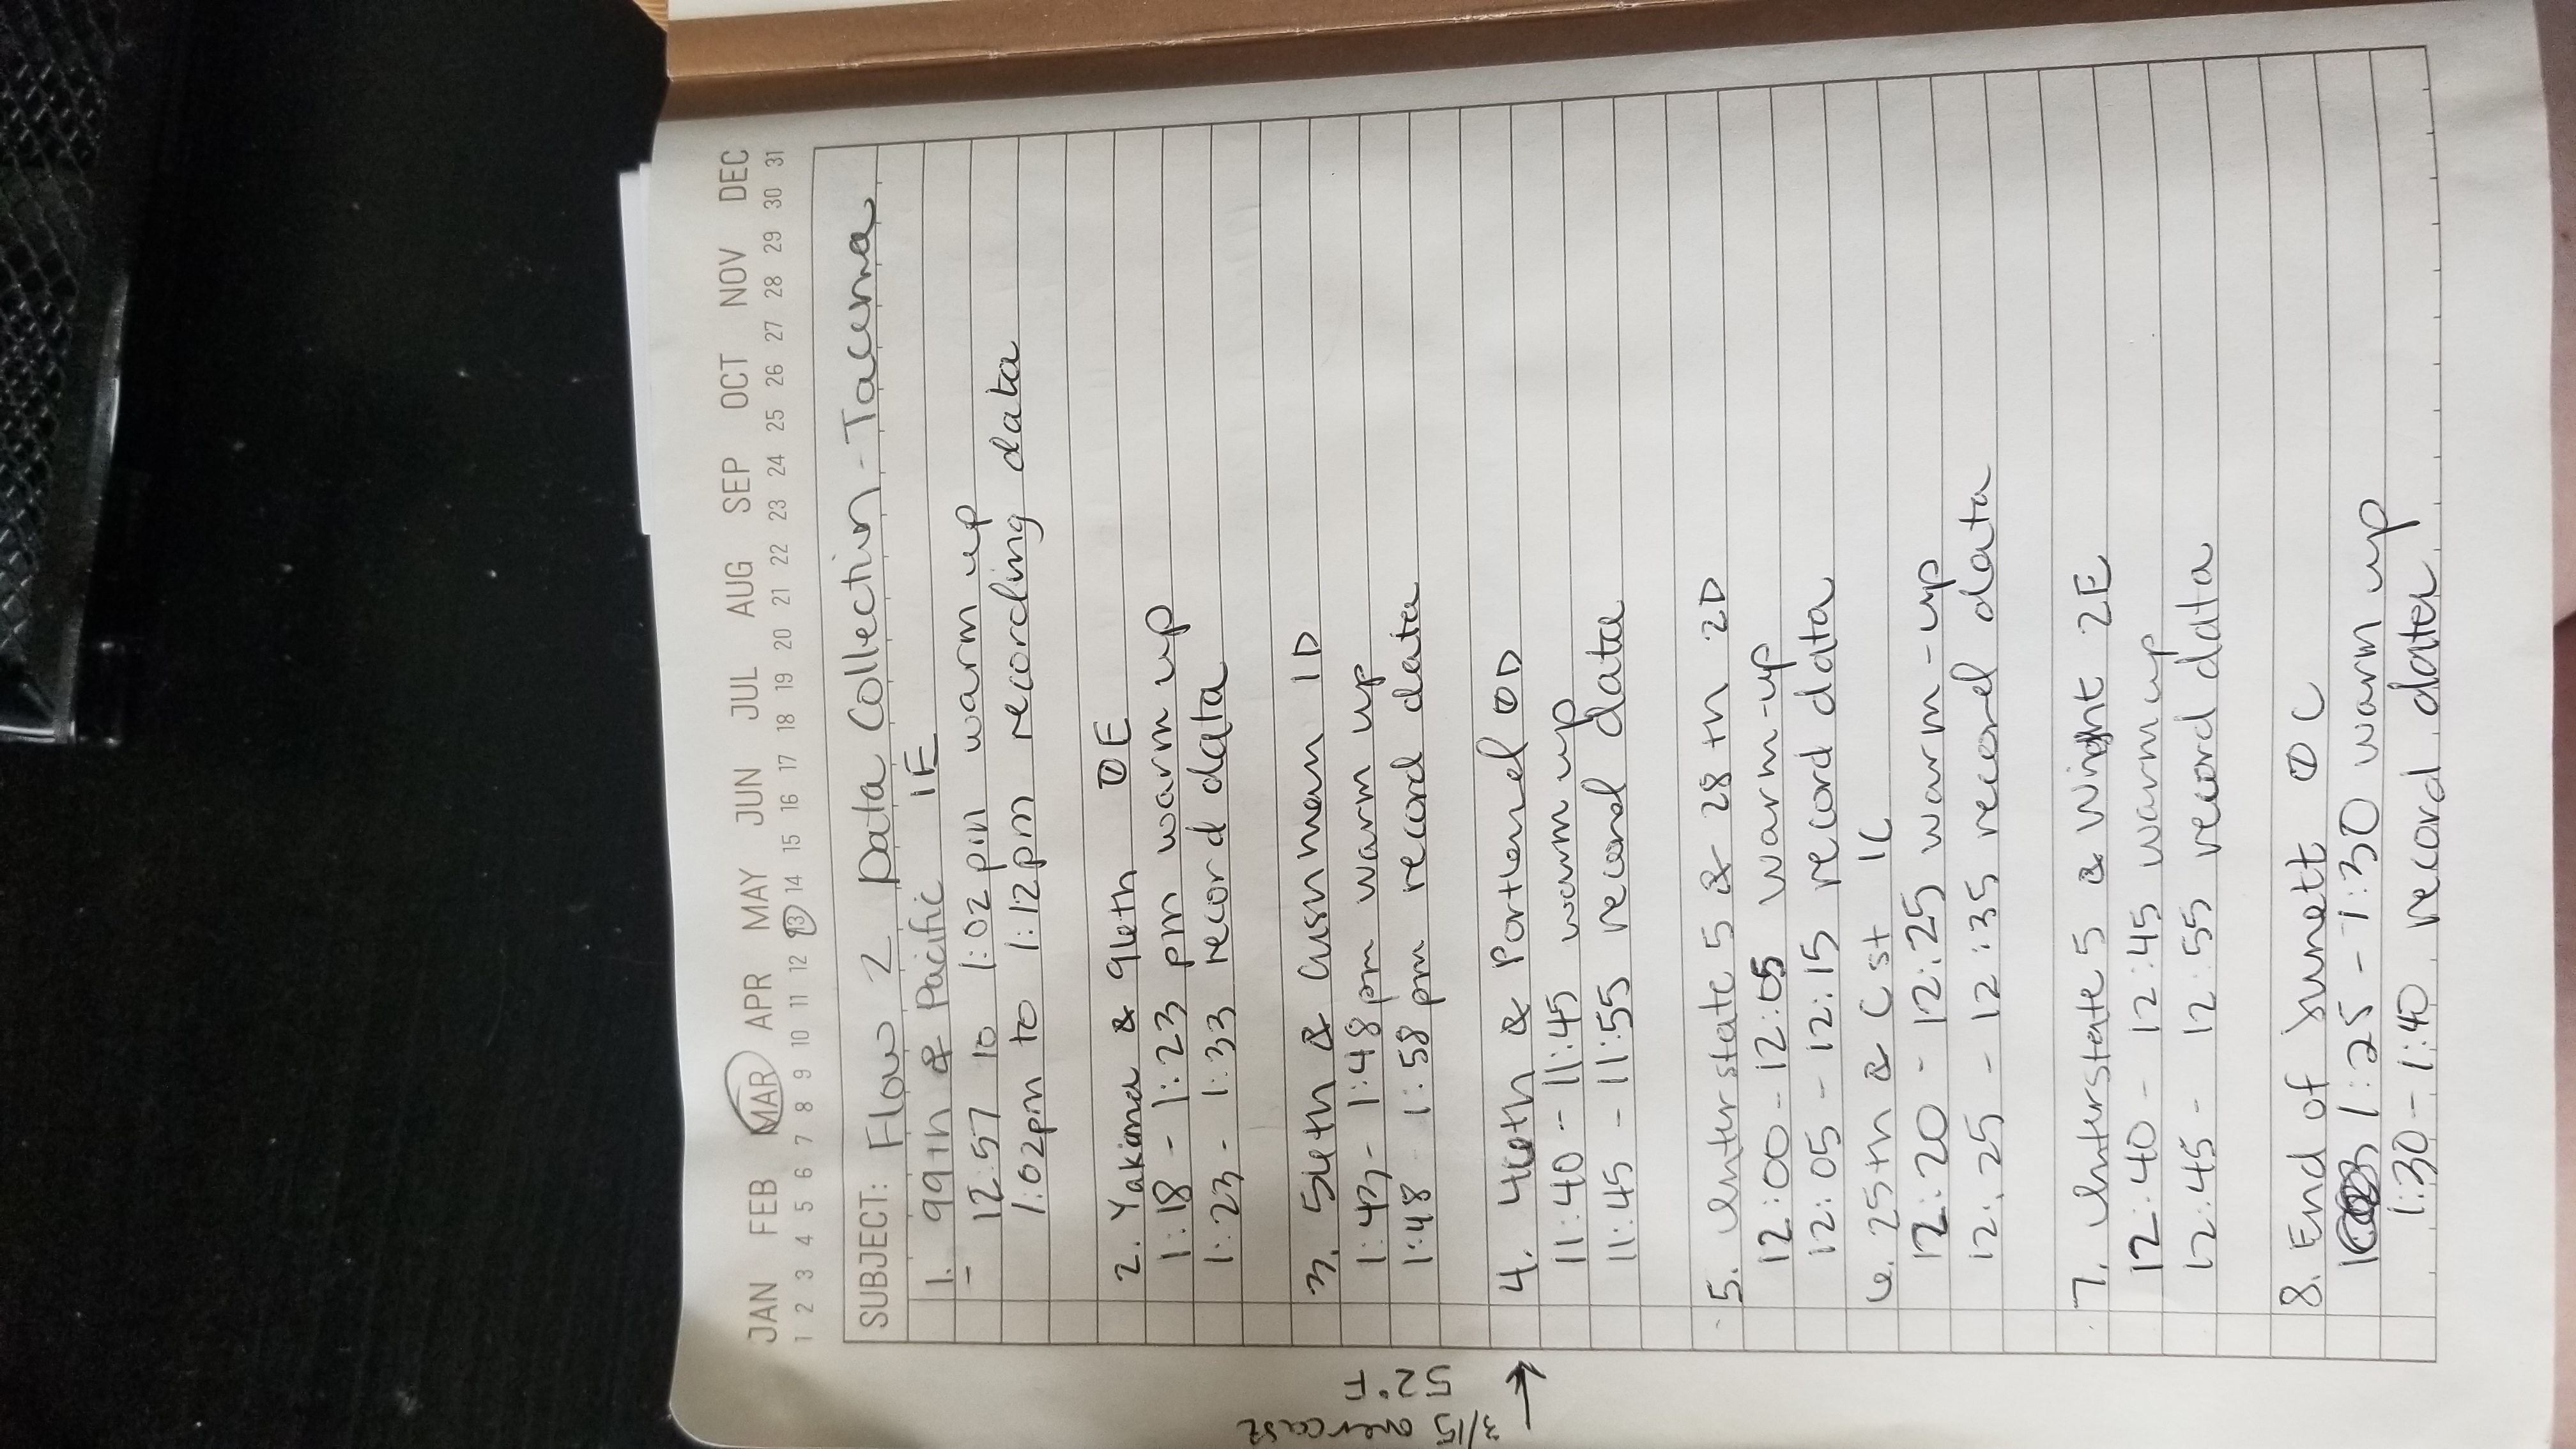 JAN FEB MAR APR MAY JUN JUL AUG SEP OCT NOV DEC
1 2 3 4 5 6 7 8 9 10 11 12 13 14 15 16 17 18 19 20 21 22 23 24 25 26 27 28 29 30 31
SUBJECT: Flow 2 Data Collection - Tacoma
1. 99th & Pacific 1E
12:57 to 1:02 pm warm up
1:02pm to 1:12pm recording data
2. Yakima & 96th 0E
1:18 - 1:23 pm warm up
1:23 - 1:33 record data
3. 56th & Cushman 1D
1:43 - 1:48pm warm up
1:48 - 1:58 pm record data
3/15 overcast
52°F
4. 46th & Portland 0D
11:40 - 11:45 warm up
11:45 - 11:55 record data
5. Interstate 5 & 28th 2D
12:00 - 12:05 warm-up
12:05 - 12:15 record data
6. 25th & C st 1C
12:20 - 12:25 warm-up
12:25 - 12:35 record data
7. Interstate 5 & Wright 2E
12:40 - 12:45 warm up
12:45 - 12:55 record data
8. End of 0C
1:25 - 1:30 warm up
1:30 - 1:40 record data